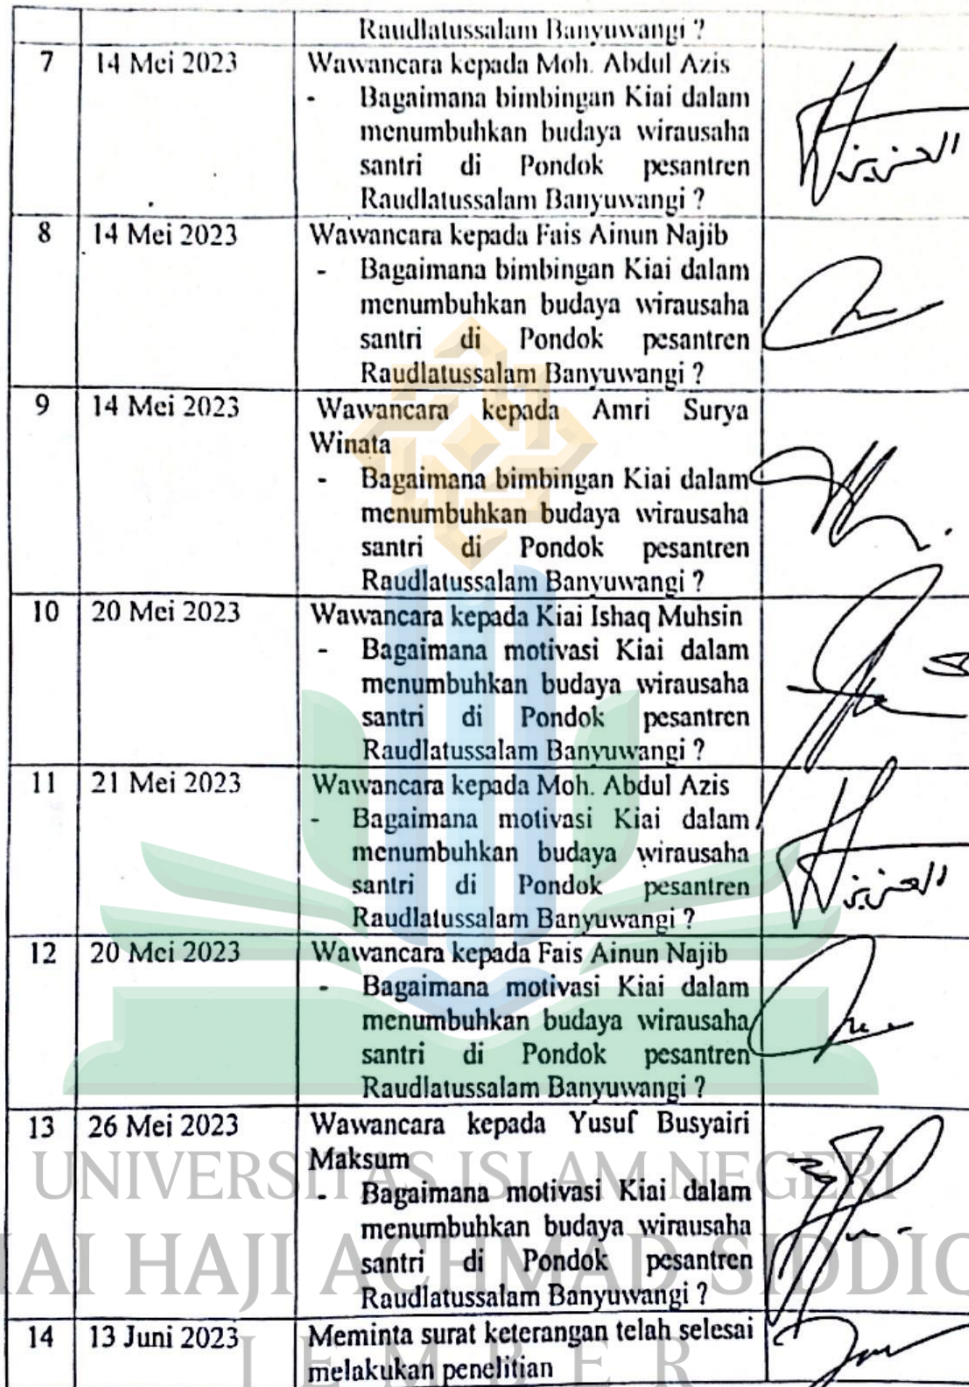 Raudlatussalam Banyuwangi ?
7 14 Mei 2023 Wawancara kepada Moh. Abdul Azis
- Bagaimana bimbingan Kiai dalam
menumbuhkan budaya wirausaha
santri di Pondok pesantren
Raudlatussalam Banyuwangi ?
8 14 Mei 2023 Wawancara kepada Fais Ainun Najib
- Bagaimana bimbingan Kiai dalam
menumbuhkan budaya wirausaha
santri di Pondok pesantren
Raudlatussalam Banyuwangi ?
9 14 Mei 2023 Wawancara kepada Amri Surya
Winata
- Bagaimana bimbingan Kiai dalam
menumbuhkan budaya wirausaha
santri di Pondok pesantren
Raudlatussalam Banyuwangi ?
10 20 Mei 2023 Wawancara kepada Kiai Ishaq Muhsin
- Bagaimana motivasi Kiai dalam
menumbuhkan budaya wirausaha
santri di Pondok pesantren
Raudlatussalam Banyuwangi ?
11 21 Mei 2023 Wawancara kepada Moh. Abdul Azis
- Bagaimana motivasi Kiai dalam
menumbuhkan budaya wirausaha
santri di Pondok pesantren
Raudlatussalam Banyuwangi ?
12 20 Mei 2023 Wawancara kepada Fais Ainun Najib
- Bagaimana motivasi Kiai dalam
menumbuhkan budaya wirausaha
santri di Pondok pesantren
Raudlatussalam Banyuwangi ?
13 26 Mei 2023 Wawancara kepada Yusuf Busyairi
Maksum
- Bagaimana motivasi Kiai dalam
menumbuhkan budaya wirausaha
santri di Pondok pesantren
Raudlatussalam Banyuwangi ?
14 13 Juni 2023 Meminta surat keterangan telah selesai
melakukan penelitian
UNIVERSITAS ISLAM NEGERI
AI HAJI ACHMAD SIDDIQ
JEMBER